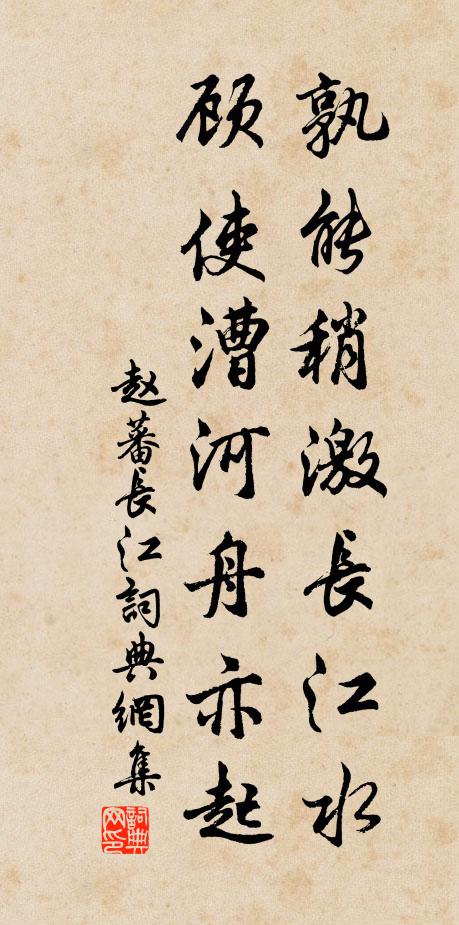 孰能稍激長江水
顧使漕河舟亦起
趙蕃長江詞典網集
詞典
网印